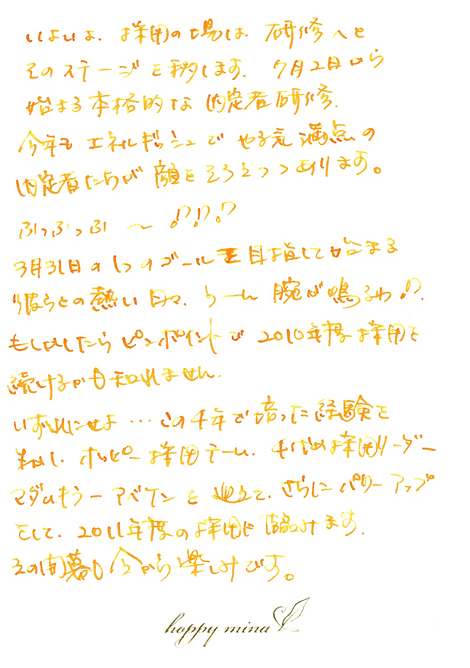 いよいよ、採用の場は 研修へと
そのステージを移します。7月2日から
始まる本格的な内定者研修、
今年も エネルギッシュで やる気満点の
内定者たちが 顔をそろえつつあります。
ふっふっふ 〜 !?!?!?
3月31日の1つのゴールを目指して始まる
彼らとの熱い日々、うーん 腕が鳴るわ!?、
もしかしたらピンポイントで 2010年度採用を
続けるかも知れません。
いずれにせよ…この4年で培った経験を
ホッピー採用チーム、採用リーダー
を迎えて、さらにパワーアップ
をして、2011年度の採用に臨みます。
その開幕も今から楽しみです。
happy mina